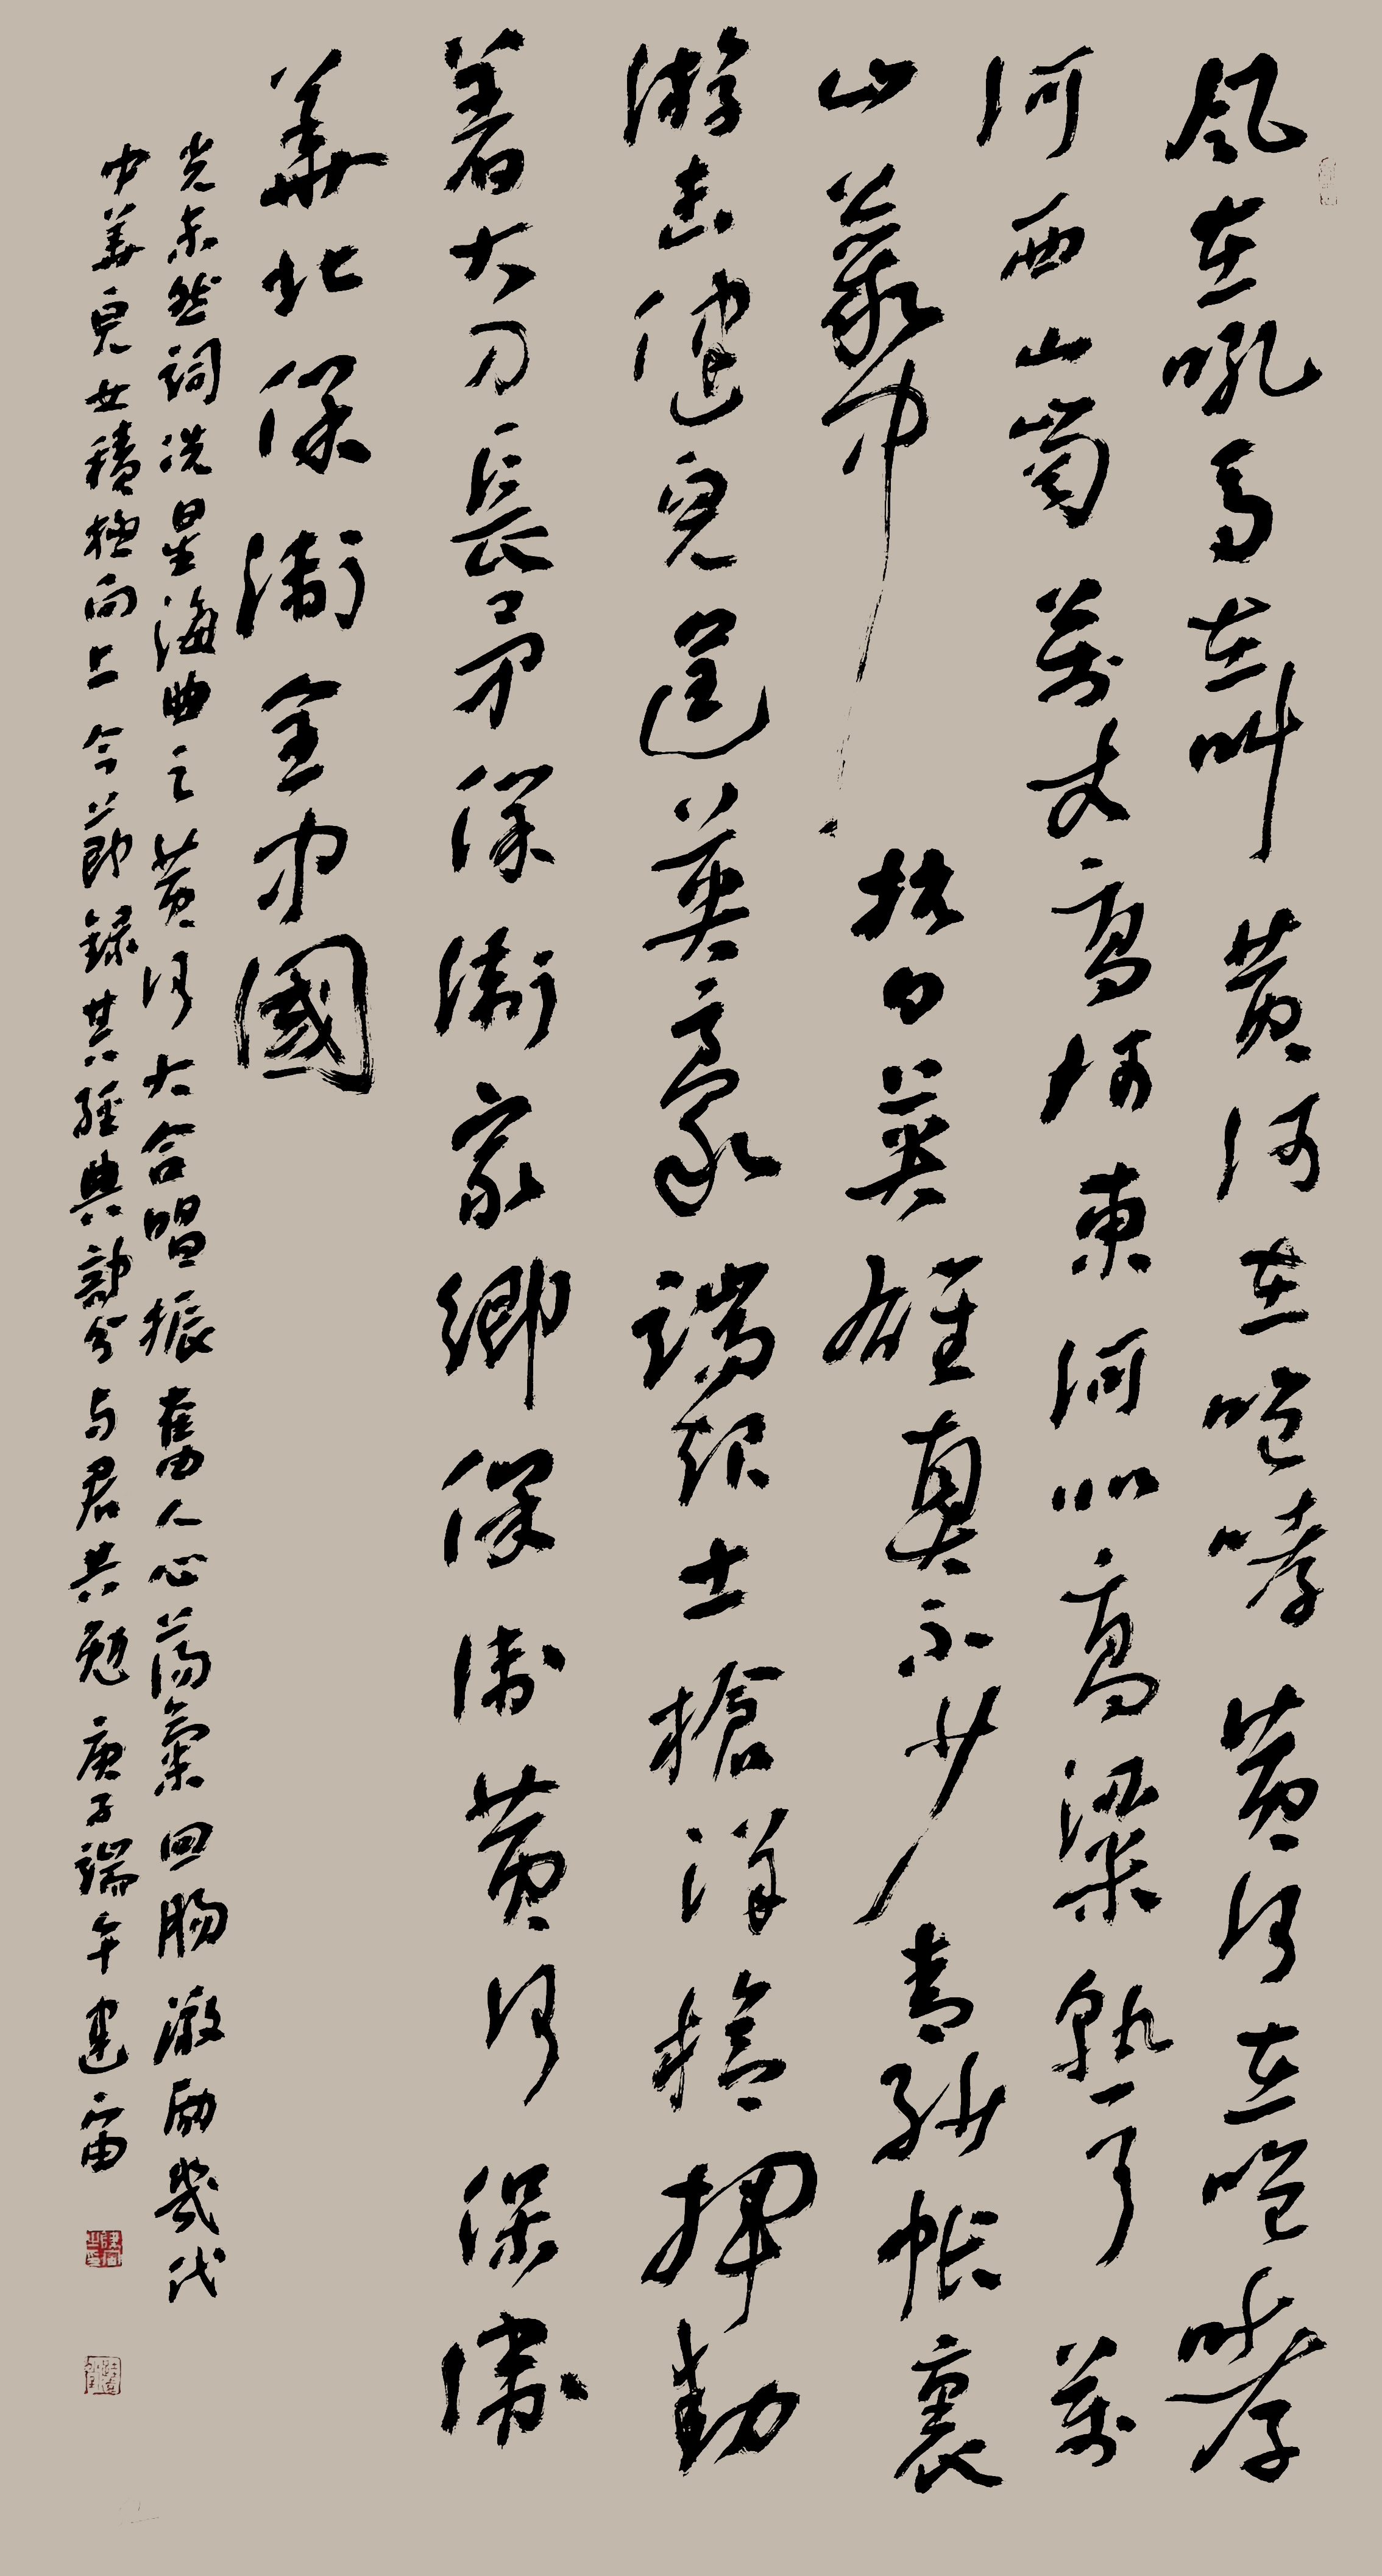 風在吼馬在叫黃河在咆哮黃河在咆哮
河西山崗萬丈高河東河北高粱熟了萬
山叢中抗日英雄真不少青紗帳裏
游击健兒逞英豪端起土槍洋槍揮動
着大刀長矛保衛家鄉保衛黃河保衛
華北保衛全中國
光未然詞冼星海曲之黃河大合唱振奮人心蕩氣回腸激勵幾代
中華兒女積極向上今節録其經典部分与君共勉庚子端午建宙